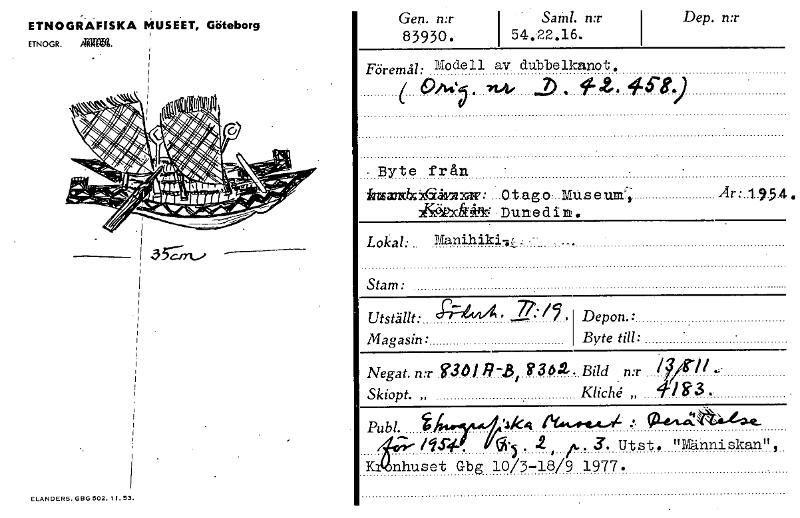 ETNOGRAFISKA MUSEET, Göteborg
ETNOGR.
35cm
ELANDERS, GBG 502. 11. 53.
Gen. n:r Saml. n:r Dep. n:r
83930. 54.22.16.
Föremål: Modell av dubbelkanot.
(Orig. nr D. 42. 458.)
Byte från
Otago Museum, År: 1954.
Dunedin.
Lokal: Manihiki
Stam:
Utställt: Söderh. II:19. Depon.:
Magasin: Byte till:
Negat. n:r 8301 A-B, 8302. Bild n:r 13,811.
Skiopt. „ Kliché „ 4183.
Publ. Etnografiska Museet: Berättelse
för 1954. Fig. 2, p. 3. Utst. "Människan",
Kronhuset Gbg 10/3-18/9 1977.